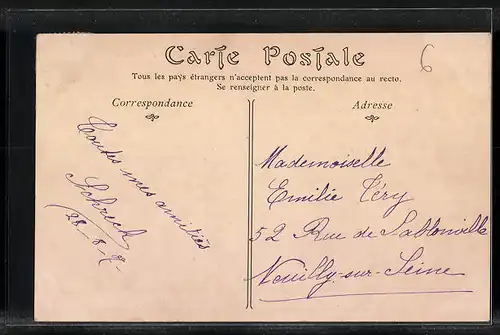 Carte Postale
6
Tous les pays étrangers n'acceptent pas la correspondance au recto.
Se renseigner à la poste.
Correspondance
Toutes mes amitiés
Schreck
28-8-7-
Adresse
Mademoiselle
Emilie Téry
52 Rue de Sablonville
Neuilly-sur-Seine